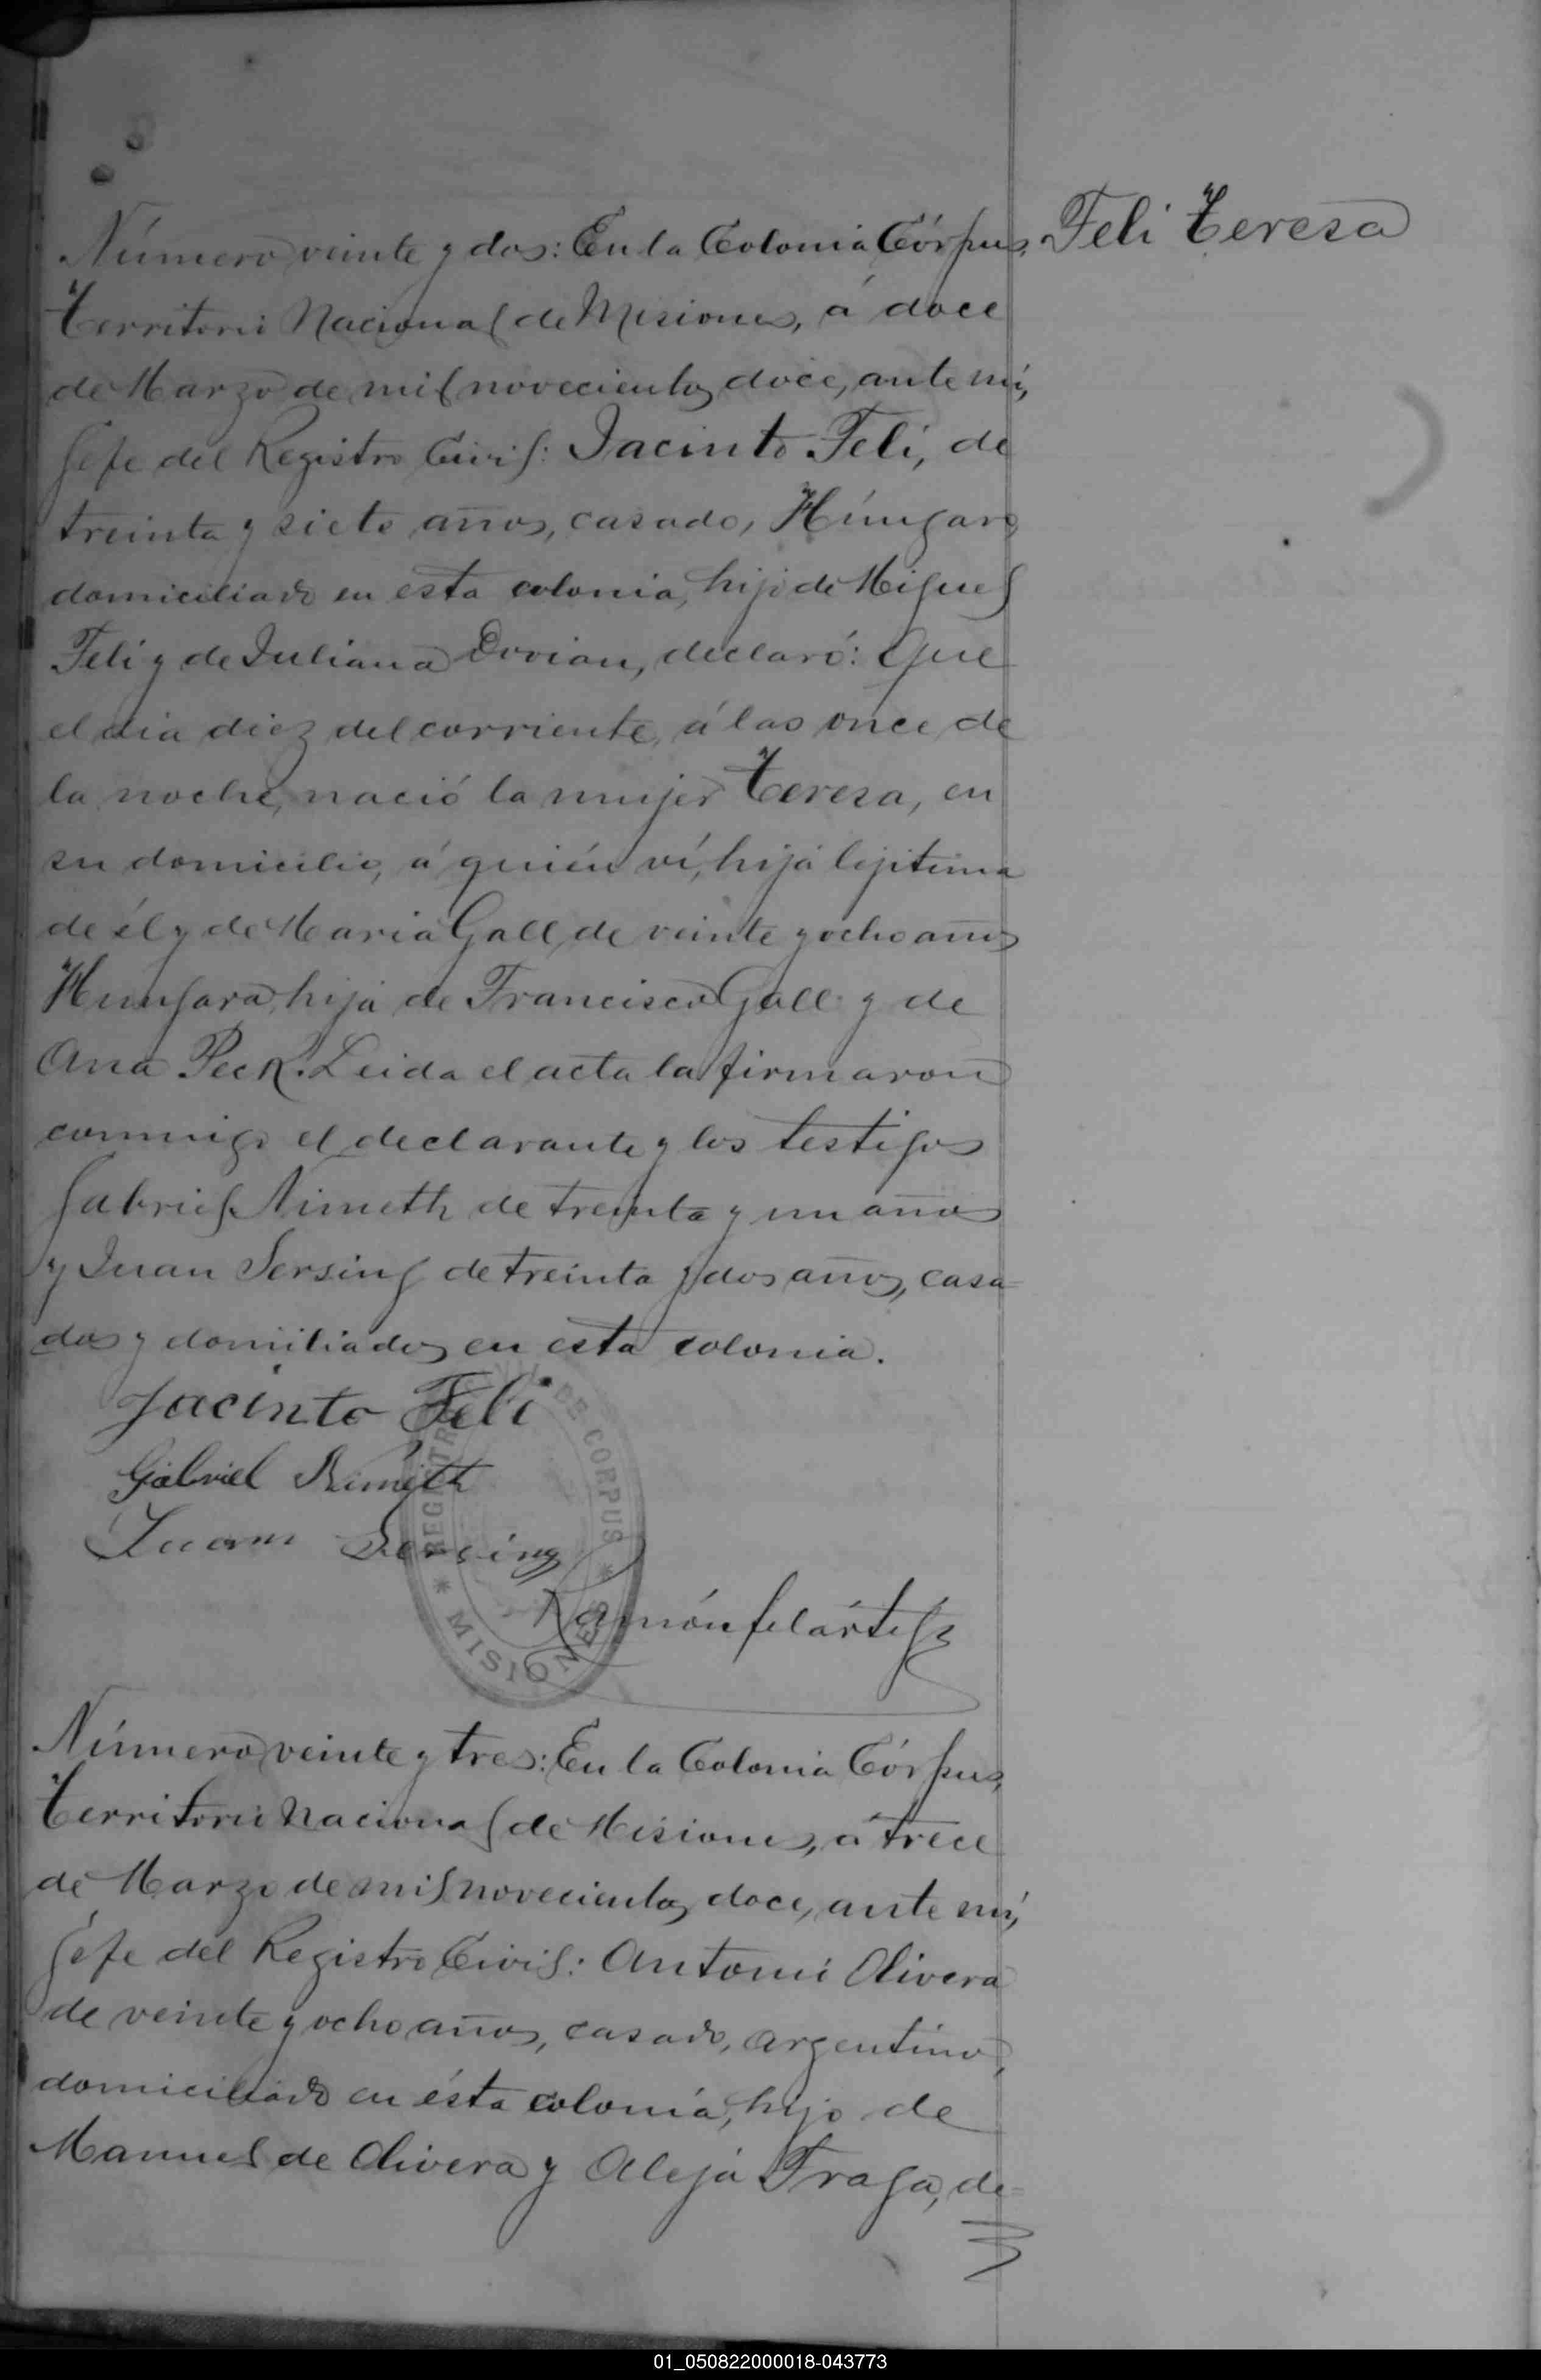 Feli Teresa
Número veinte y dos: En la Colonia Córpus,
Territorio Nacional de Misiones, á doce
de Marzo de mil novecientos doce, ante mí,
Gefe del Registro Civil: Jacinto Feli, de
treinta y siete años, casado, Húngaro
domiciliado en esta colonia, hijo de Miguel
Feli y de Juliana Dorian, declaró: Que
el dia diez del corriente, á las once de
la noche, nació la mujer Teresa, en
su domicilio, á quién ví, hija lejitima
de él y de Maria Gall de veinte y ocho años
Hungara, hija de Francisco Gall y de
Ana Peck. Leida el acta la firmaron
conmigo el declarante y los testigos
Gabriel Nimeth de treinta y un años
y Juan Sersing de treinta y dos años, casa
dos y domiliados en esta colonia.
Jacinto Feli
Gabriel Nimeth
Juan Sersing
REGISTRO CIVIL DE CORPUS * MISIONES *
Ramón
Número veinte y tres: En la Colonia Córpus,
Territorio Nacional de Misiones, á trece
de Marzo de mil novecientos doce, ante mí,
Gefe del Registro Civil: Antonio Olivera
de veinte y ocho años, casado, argentino,
domiciliado en ésta colonia, hijo de
Manuel de Olivera y Aleja Fraga, de-
01_050822000018-043773